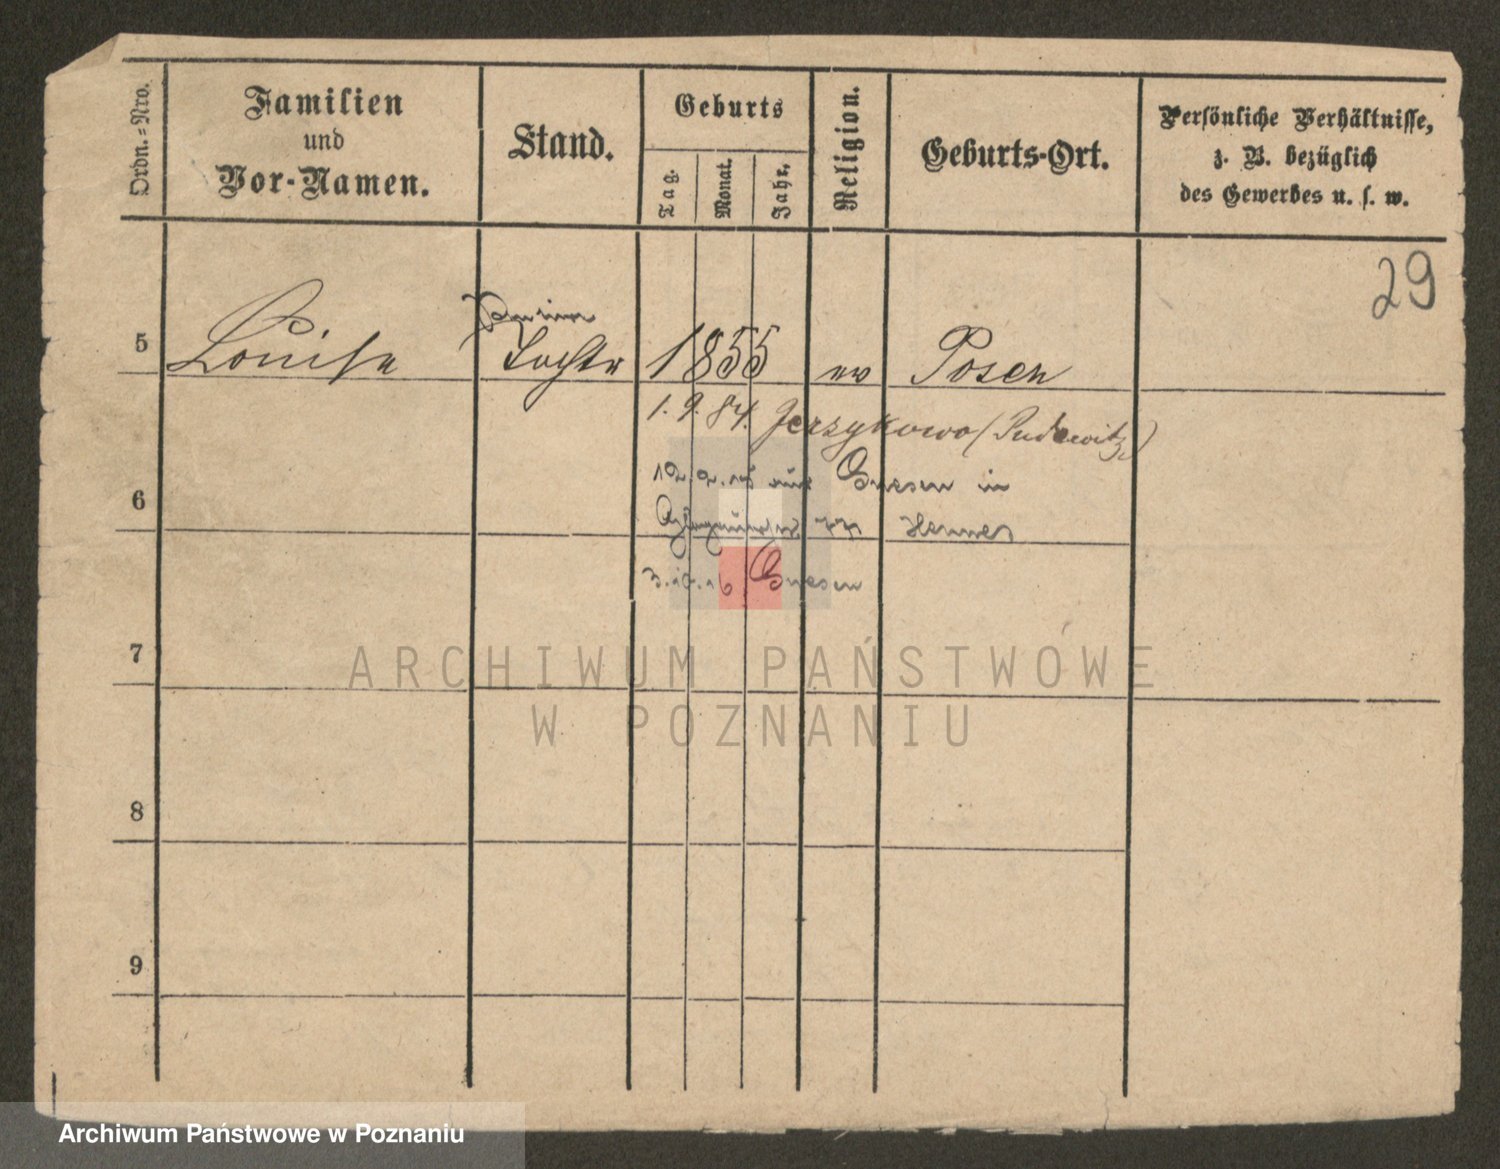 Ordn.=Nro.
Familien
und
Vor-Namen.
Stand.
Geburts
Tag.
Monat.
Jahr.
Religion.
Geburts-Ort.
Persönliche Verhältnisse,
z. B. bezüglich
des Gewerbes u. s. w.
29
5 Louise Tochtr 1855 ev Posen
1. 9. 84. Jerzykowo (Pudewitz)
6
Gnesen in
Hennes
Gnesen
7
ARCHIWUM PAŃSTWOWE
W POZNANIU
8
9
Archiwum Państwowe w Poznaniu